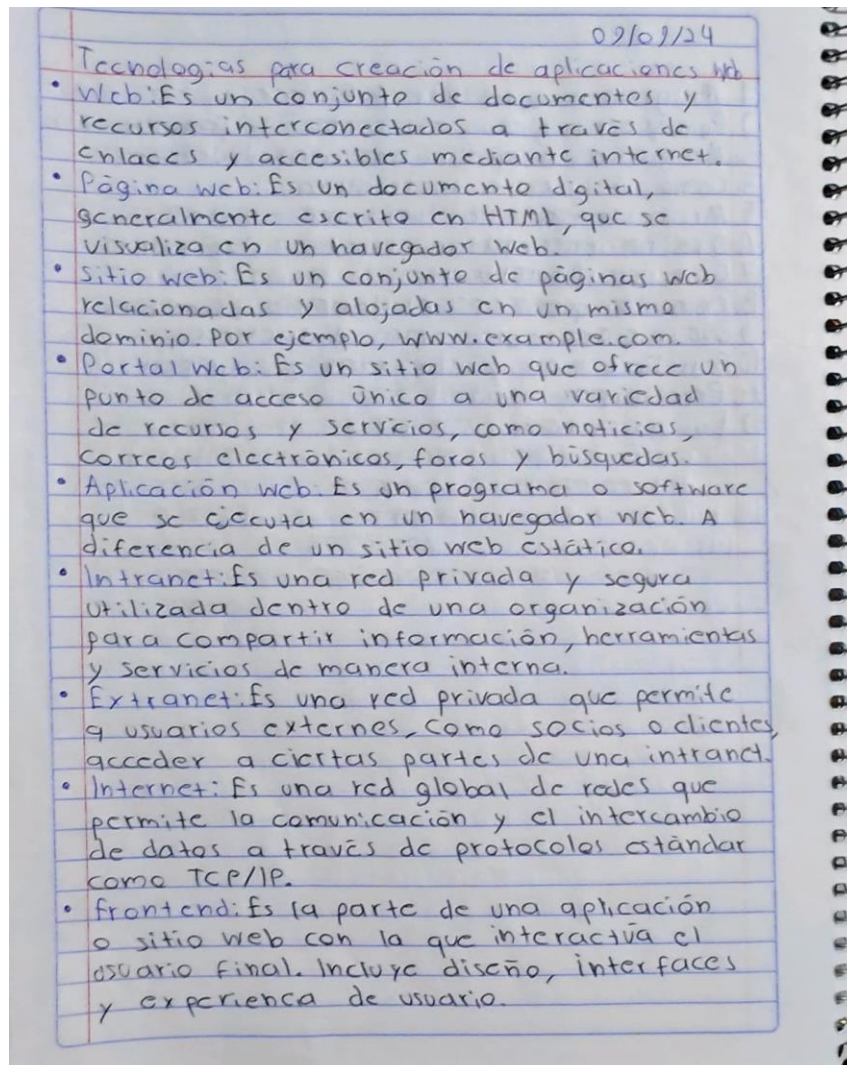 09/09/24
Tecnologias para creación de aplicaciones web
• Web: Es un conjunto de documentos y
recursos interconectados a través de
enlaces y accesibles mediante internet.
• Página web: Es un documento digital,
generalmente escrito en HTML, que se
visualiza en un navegador web.
• Sitio web: Es un conjunto de páginas web
relacionadas y alojadas en un mismo
dominio. Por ejemplo, www.example.com.
• Portal web: Es un sitio web que ofrece un
punto de acceso único a una variedad
de recursos y servicios, como noticias,
correos electrónicos, foros y búsquedas.
• Aplicación web: Es un programa o software
que se ejecuta en un navegador web. A
diferencia de un sitio web estático.
• Intranet: Es una red privada y segura
utilizada dentro de una organización
para compartir información, herramientas
y servicios de manera interna.
• Extranet: Es una red privada que permite
a usuarios externos, como socios o clientes,
acceder a ciertas partes de una intranet.
• Internet: Es una red global de redes que
permite la comunicación y el intercambio
de datos a través de protocolos estándar
como TCP/IP.
• Frontend: Es la parte de una aplicación
o sitio web con la que interactúa el
usuario final. Incluye diseño, interfaces
y experienca de usuario.